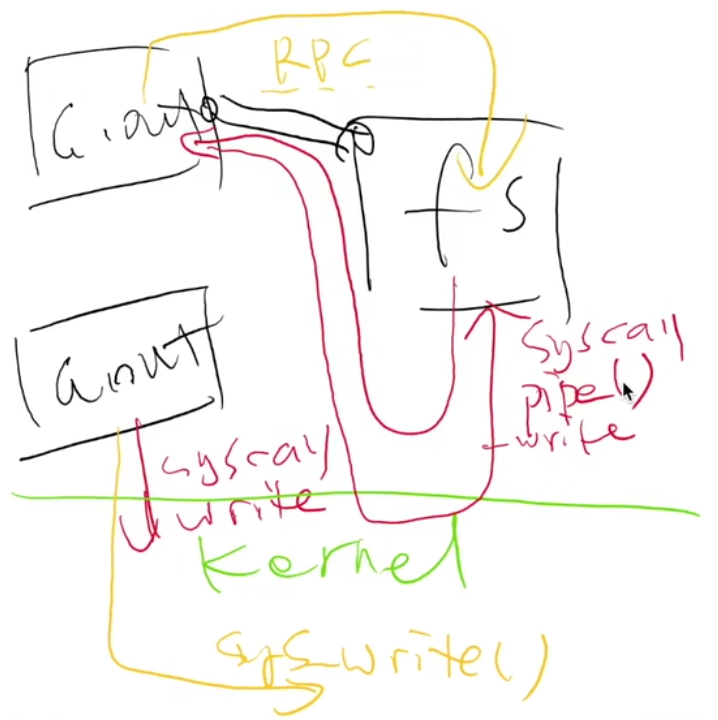 RPC
a.out
fs
a.out
syscall
pipe()
write
syscall
write
Kernel
sys_write()